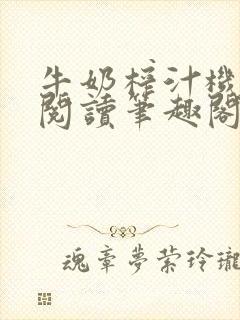 牛奶榨汁機
閱讀筆趣閣
魂牽夢縈玲瓏